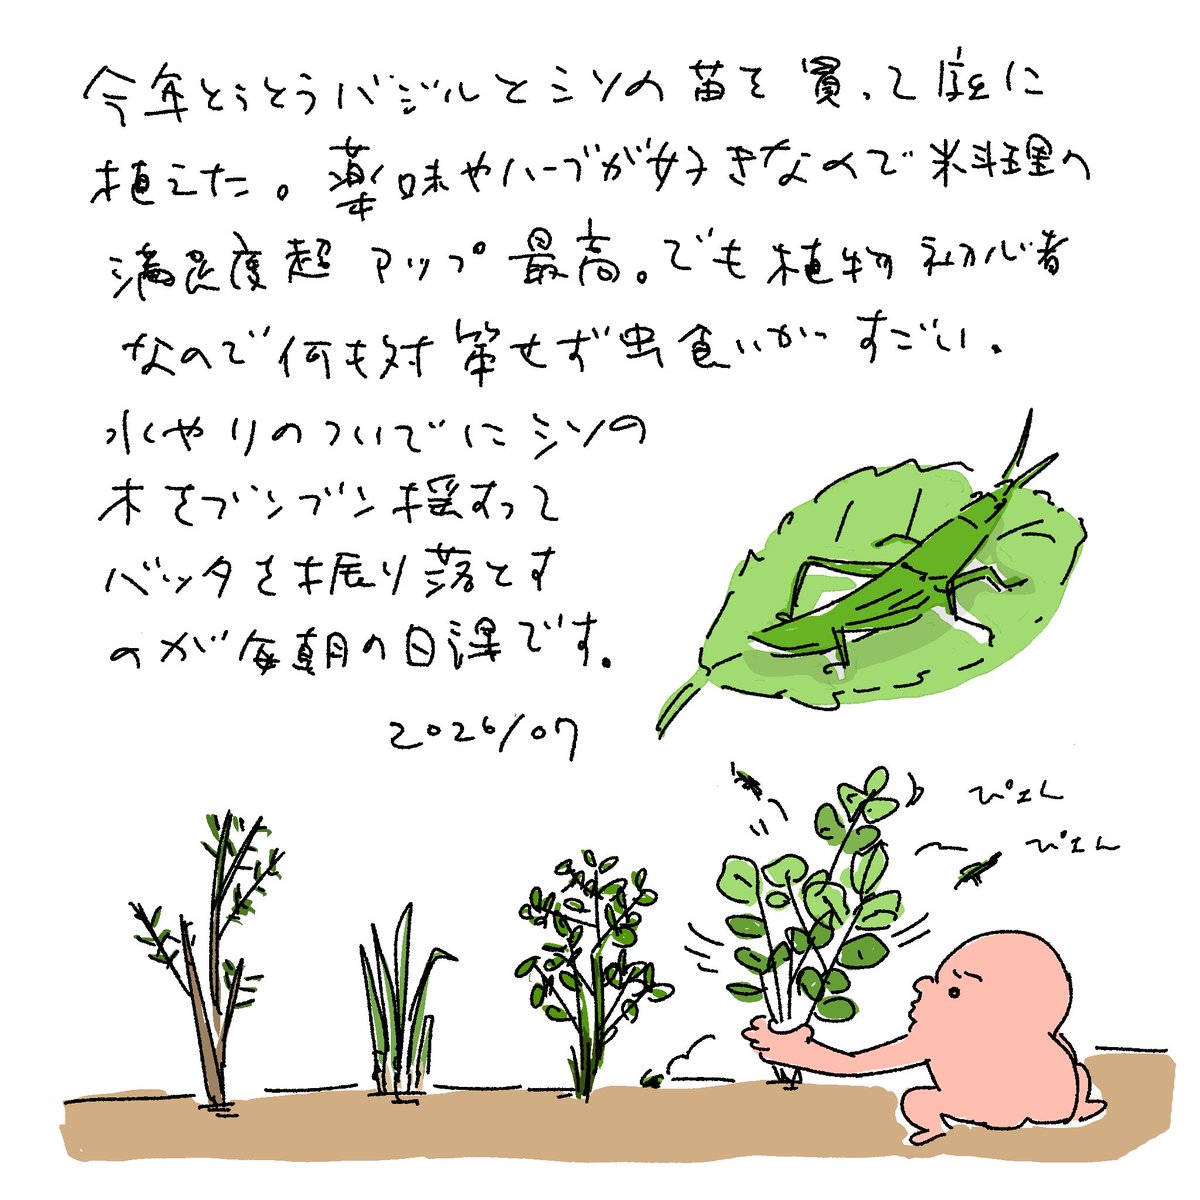 今年とうとうバジルとシソの苗を買って庭に
植えた。薬味やハーブが好きなので料理の
満足度超アップ最高。でも植物初心者
なので何も対策せず虫食いがすごい。
水やりのついでにシソの
木をブンブン揺すって
バッタを振り落とす
のが毎朝の日課です。
2026/07
ぴょん
ぴょん